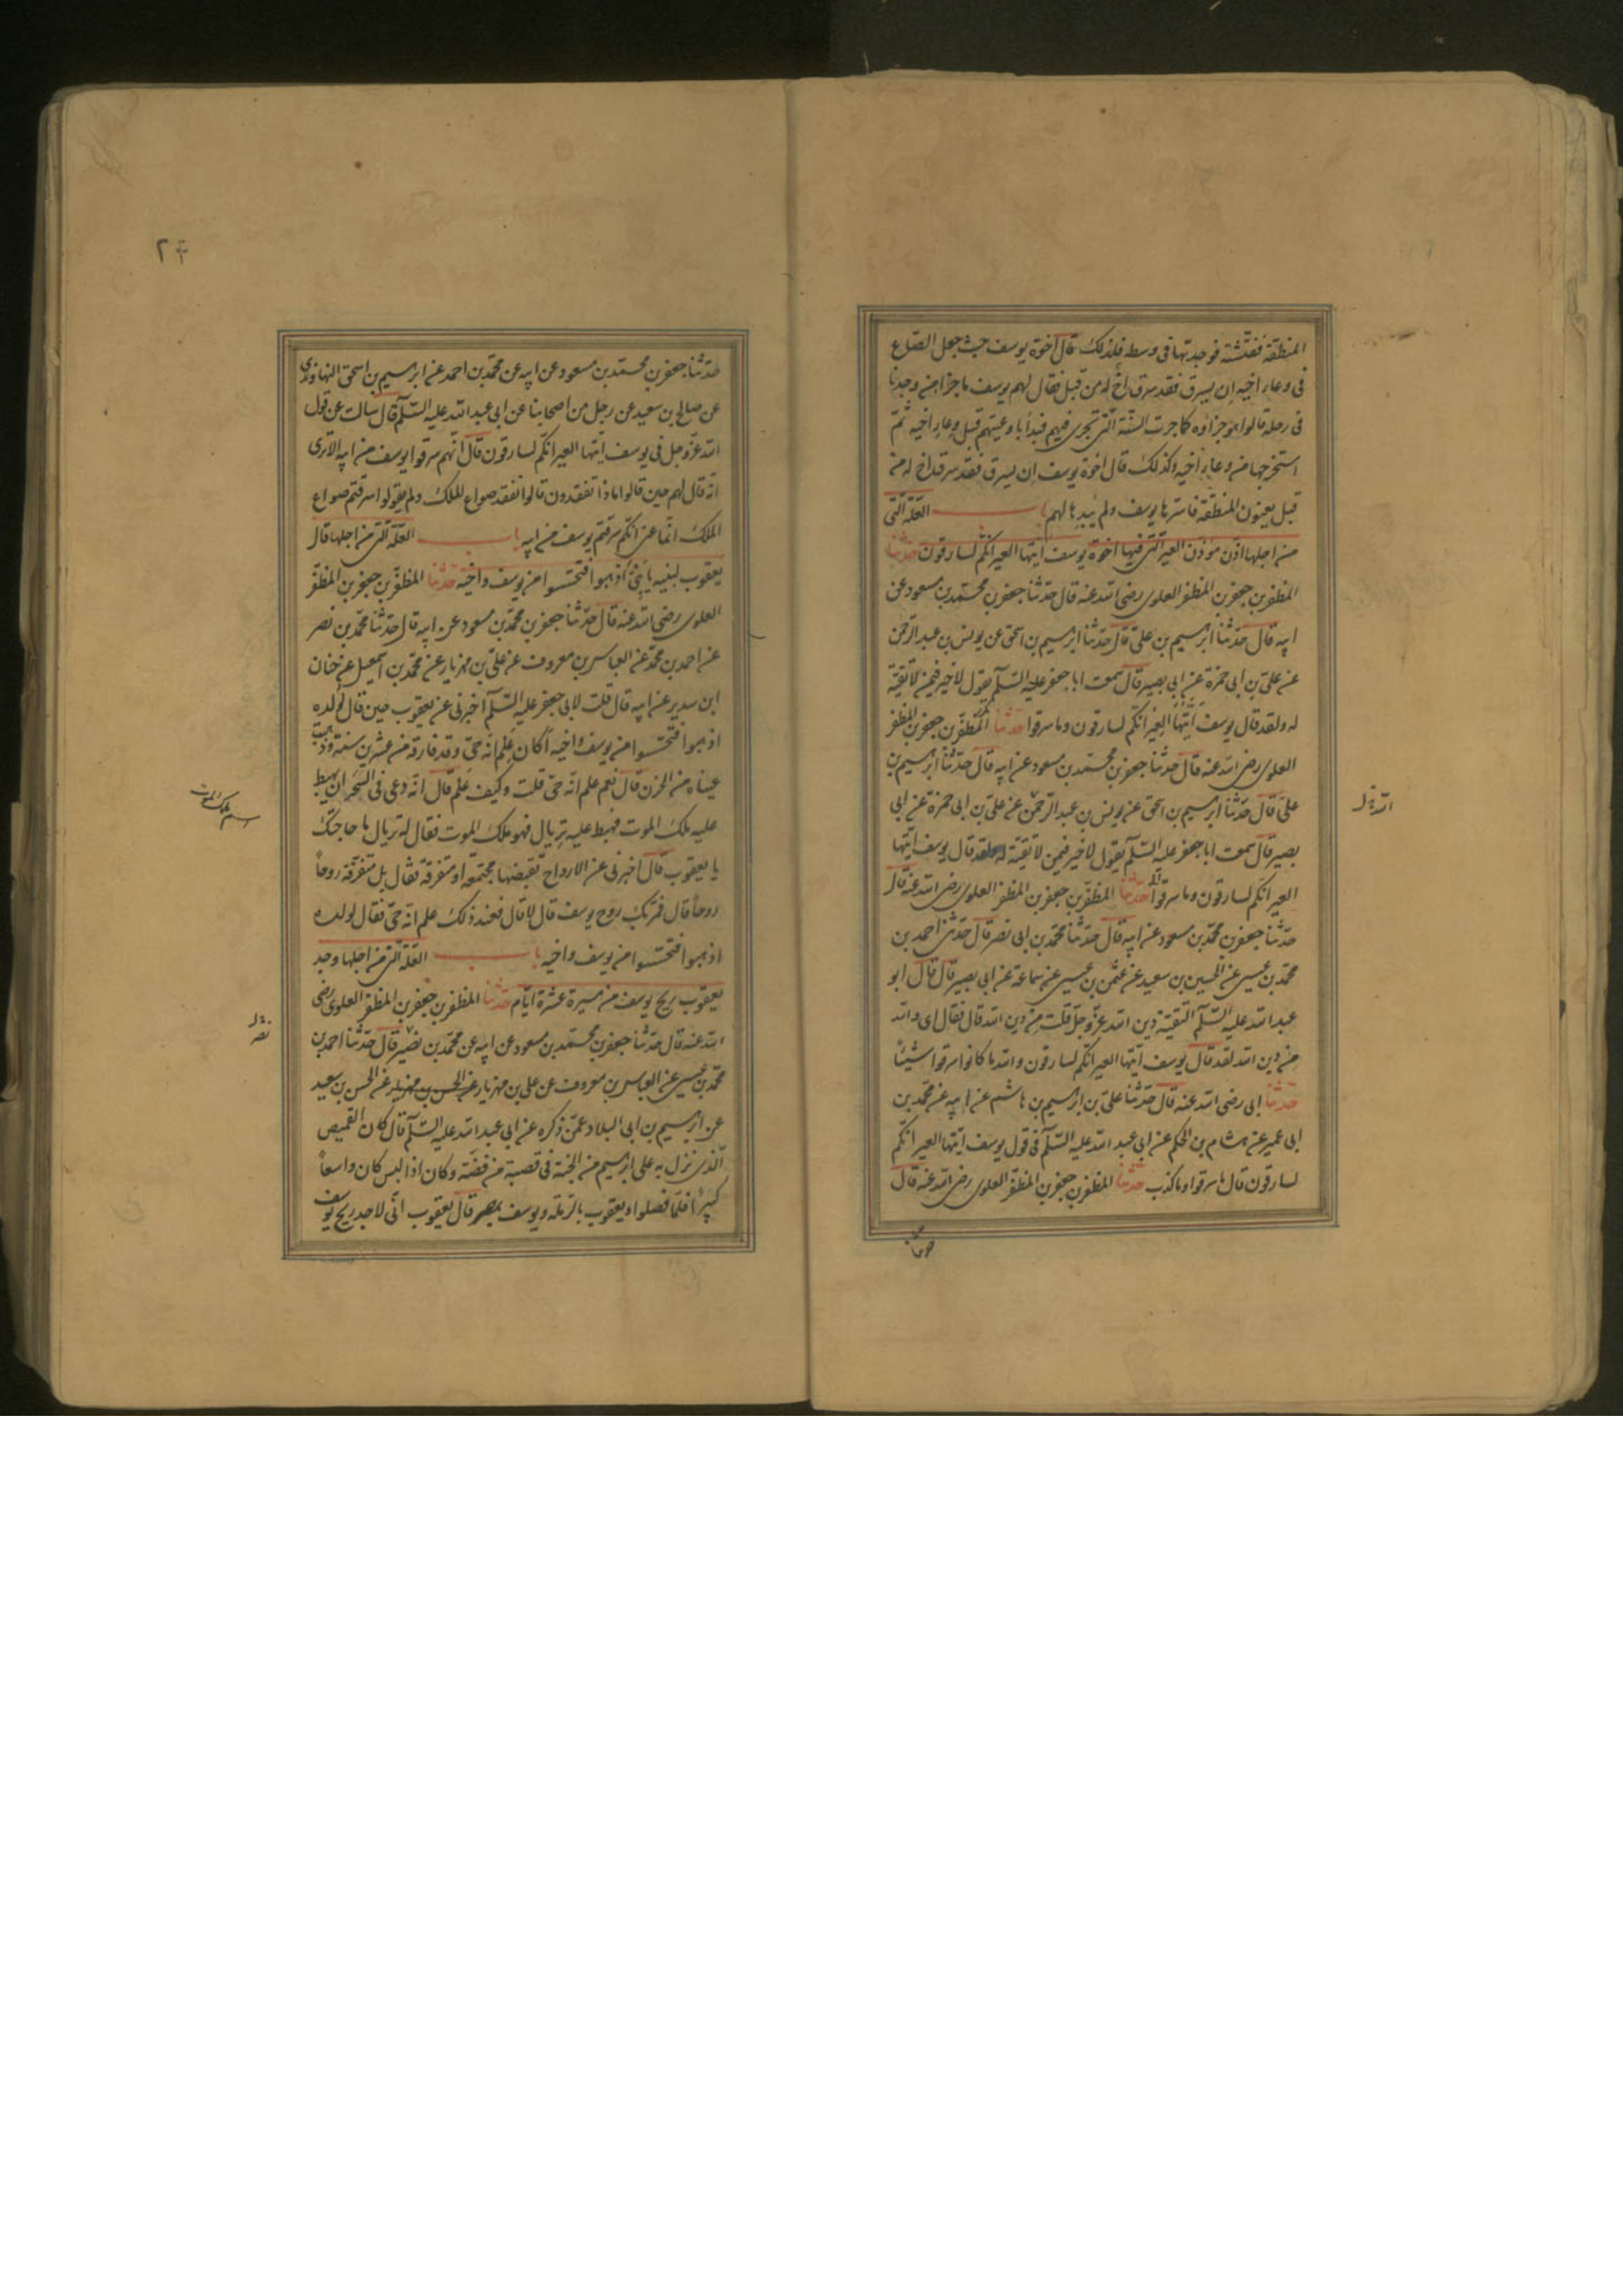 المنطقة ففتشته فوجدتها فى وسطه فلذلك قال اخوة يوسف حيث جعل الصاع
فى وعاء اخيه ان يسرق فقد سرق اخ له من قبل فقال لهم يوسف ما جزاء من وجدنا
فى رحله قالوا هو جزاؤه كما جرت السّنّة التى تجرى فيهم فبدأ باوعيتهم قبل وعاء اخيه ثمّ
استخرجها من وعاء اخيه وكذلك قال اخوة يوسف ان يسرق فقد سرق اخ له من
قبل يعنون المنطقة فاسرّها يوسف ولم يبدها لهم باب العلّة الّتى
من اجلها اذّن مؤذّن العير الّتى فيها اخوة يوسف ايّتها العير انّكم لسارقون حدّثنا
المظفّر بن جعفر بن المظفر العلوى رضى الله عنه قال حدّثنا جعفر بن محمّد بن مسعود عن
ابيه قال حدّثنا ابرهيم بن علىّ قال حدّثنا ابرهيم بن اسحق عن يونس بن عبد الرّحمن
عن علىّ بن ابى حمزة عن ابى بصير قال سمعت ابا جعفر عليه السّلم يقول لا خير فيمن لا تقيّة
له ولقد قال يوسف ايّتها العير انّكم لسارقون وما سرقوا حدّثنا المظفّر بن جعفر بن المظفر
العلوى رضى الله عنه قال حدّثنا جعفر بن محمّد بن مسعود عن ابيه قال حدّثنا ابرهيم بن
علىّ قال حدّثنا ابرهيم بن اسحق عن يونس بن عبد الرّحمن عن علىّ بن ابى حمزة عن ابى
بصير قال سمعت ابا جعفر عليه السّلم يقول لا خير فيمن لا تقيّة له ولقد قال يوسف ايّتها
العير انّكم لسارقون وما سرقوا حدّثنا المظفّر بن جعفر بن المظفر العلوى رضى الله عنه قال
حدّثنا جعفر بن محمّد بن مسعود عن ابيه قال حدّثنا محمّد بن ابى نصر قال حدّثنى احمد بن
محمّد بن عيسى عن الحسين بن سعيد عن عثمن بن عيسى عن سماعة عن ابى بصير قال قال ابو
عبد الله عليه السّلم التقيّة دين الله عزّ وجلّ قلت من دين الله قال فقال اى والله
من دين الله لقد قال يوسف ايّتها العير انّكم لسارقون والله ما كانوا سرقوا شيئاً
حدّثنا ابى رضى الله عنه قال حدّثنا علىّ بن ابرهيم بن هاشم عن ابيه عن محمّد بن
ابى عمير عن هشام بن الحكم عن ابى عبد الله عليه السّلم فى قول يوسف ايّتها العير انّكم
لسارقون قال ما سرقوا وما كذب حدّثنا المظفر بن جعفر بن المظفر العلوى رضى الله عنه قال
حدّثنا جعفر بن محمّد بن مسعود عن ابيه عن محمّد بن احمد عن ابرهيم بن اسحق النهاوندى
عن صالح بن سعيد عن رجل من اصحابنا عن ابى عبد الله عليه السّلم قال سالت عن قول
الله عزّ وجل فى يوسف ايّتها العير انّكم لسارقون قال انّهم سرقوا يوسف من ابيه الا ترى
انّه قال لهم حين قالوا ماذا تفقدون قالوا نفقد صواع الملك ولم يقولوا سرقتم صواع
الملك انّما عنى انّكم سرقتم يوسف من ابيه باب العلّة الّتى من اجلها قال
يعقوب لبنيه يا بنىّ اذهبوا فتحسّسوا من يوسف واخيه حدّثنا المظفّر بن جعفر بن المظفّر
العلوى رضى الله عنه قال حدّثنا جعفر بن محمّد بن مسعود عن ابيه قال حدّثنا محمّد بن نصر
عن احمد بن محمّد عن العباس بن معروف عن علىّ بن مهزيار عن محمّد بن اسمعيل عن حنان
ابن سدير عن ابيه قال قلت لابى جعفر عليه السّلم اخبرنى عن يعقوب حين قال لولده
اذهبوا فتحسّسوا من يوسف واخيه أكان علم انّه حىّ وقد فارقه من عشرين سنة وذهبت
عيناه من الحزن قال نعم علم انّه حىّ قلت وكيف علم قال انّه دعى فى السّحر ان يهبط
عليه ملك الموت فهبط عليه تريال فهو ملك الموت فقال له تريال ما حاجتك
يا يعقوب قال اخبرنى عن الارواح تقبضها مجتمعة او متفرقة فقال بل متفرّقة روحاً
روحاً قال فمرّ بك روح يوسف قال لا قال فعند ذلك علم انّه حىّ فقال لولده
اذهبوا فتحسّسوا من يوسف واخيه باب العلّة الّتى من اجلها وجد
يعقوب ريح يوسف من مسيرة عشرة ايّام حدّثنا المظفر بن جعفر بن المظفر العلوى رضى
الله عنه قال حدّثنا جعفر بن محمّد بن مسعود عن ابيه عن محمّد بن نصير قال حدّثنا احمد بن
محمّد بن عيسى عن العباس بن معروف عن على بن مهزيار عن الحسن بن مهزيار عن الحسن بن سعيد
عن ابرهيم بن ابى البلاد عمّن ذكره عن ابى عبد الله عليه السّلم قال كان القميص
الّذى نزل به على ابرهيم من الجنّة فى قصبة من فضّة وكان اذا لبس كان واسعاً
كبيراً فلمّا فصلوا ويعقوب بالرّملة ويوسف بمصر قال يعقوب انّى لاجد ريح يوسف
اسم ملك الموت
نصر